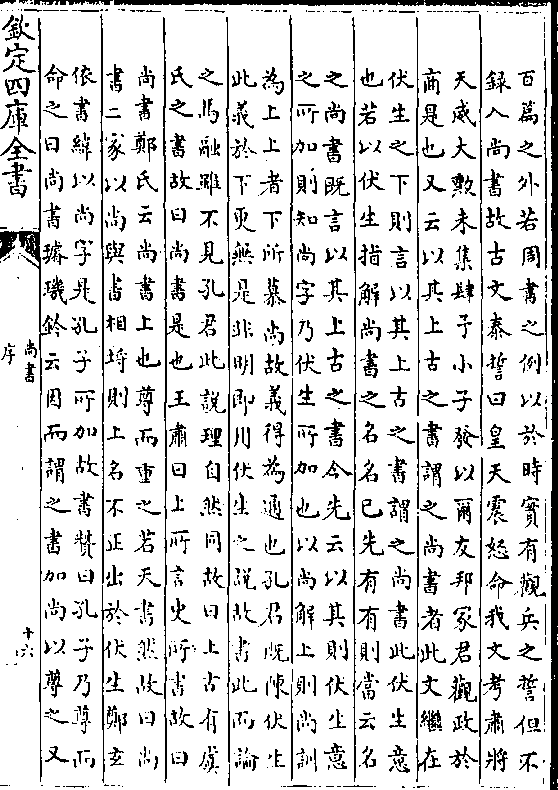 百篇之外若周書之例以於時實有觀兵之誓但不
録入尚書故古文泰誓曰皇天震怒命我文考肅將
天威大勲未集肆予小子發以爾友邦冢君觀政於
商是也又云以其上古之書謂之尚書者此文繼在
伏生之下則言以其上古之書謂之尚書此伏生意
也若以伏生指解尚書之名名已先有有則當云名
之尚書既言以其上古之書今先云以其則伏生意
之所加則知尚字乃伏生所加也以尚解上則尚訓
為上上者下所慕尚故義得為通也孔君既陳伏生
此義於下更無是非明即用伏生之說故書此而論
之馬融雖不見孔君此說理自然同故曰上古有虞
氏之書故曰尚書是也王肅曰上所言史所書故曰
尚書鄭氏云尚書上也尊而重之若天書然故曰尚
書二家以尚與書相埓則上名不正出於伏生鄭玄
依書緯以尚字是孔子所加故書贊曰孔子乃尊而
命之曰尚書璿璣鈐云因而謂之書加尚以尊之又
欽定四庫全書
尚書
序
十六